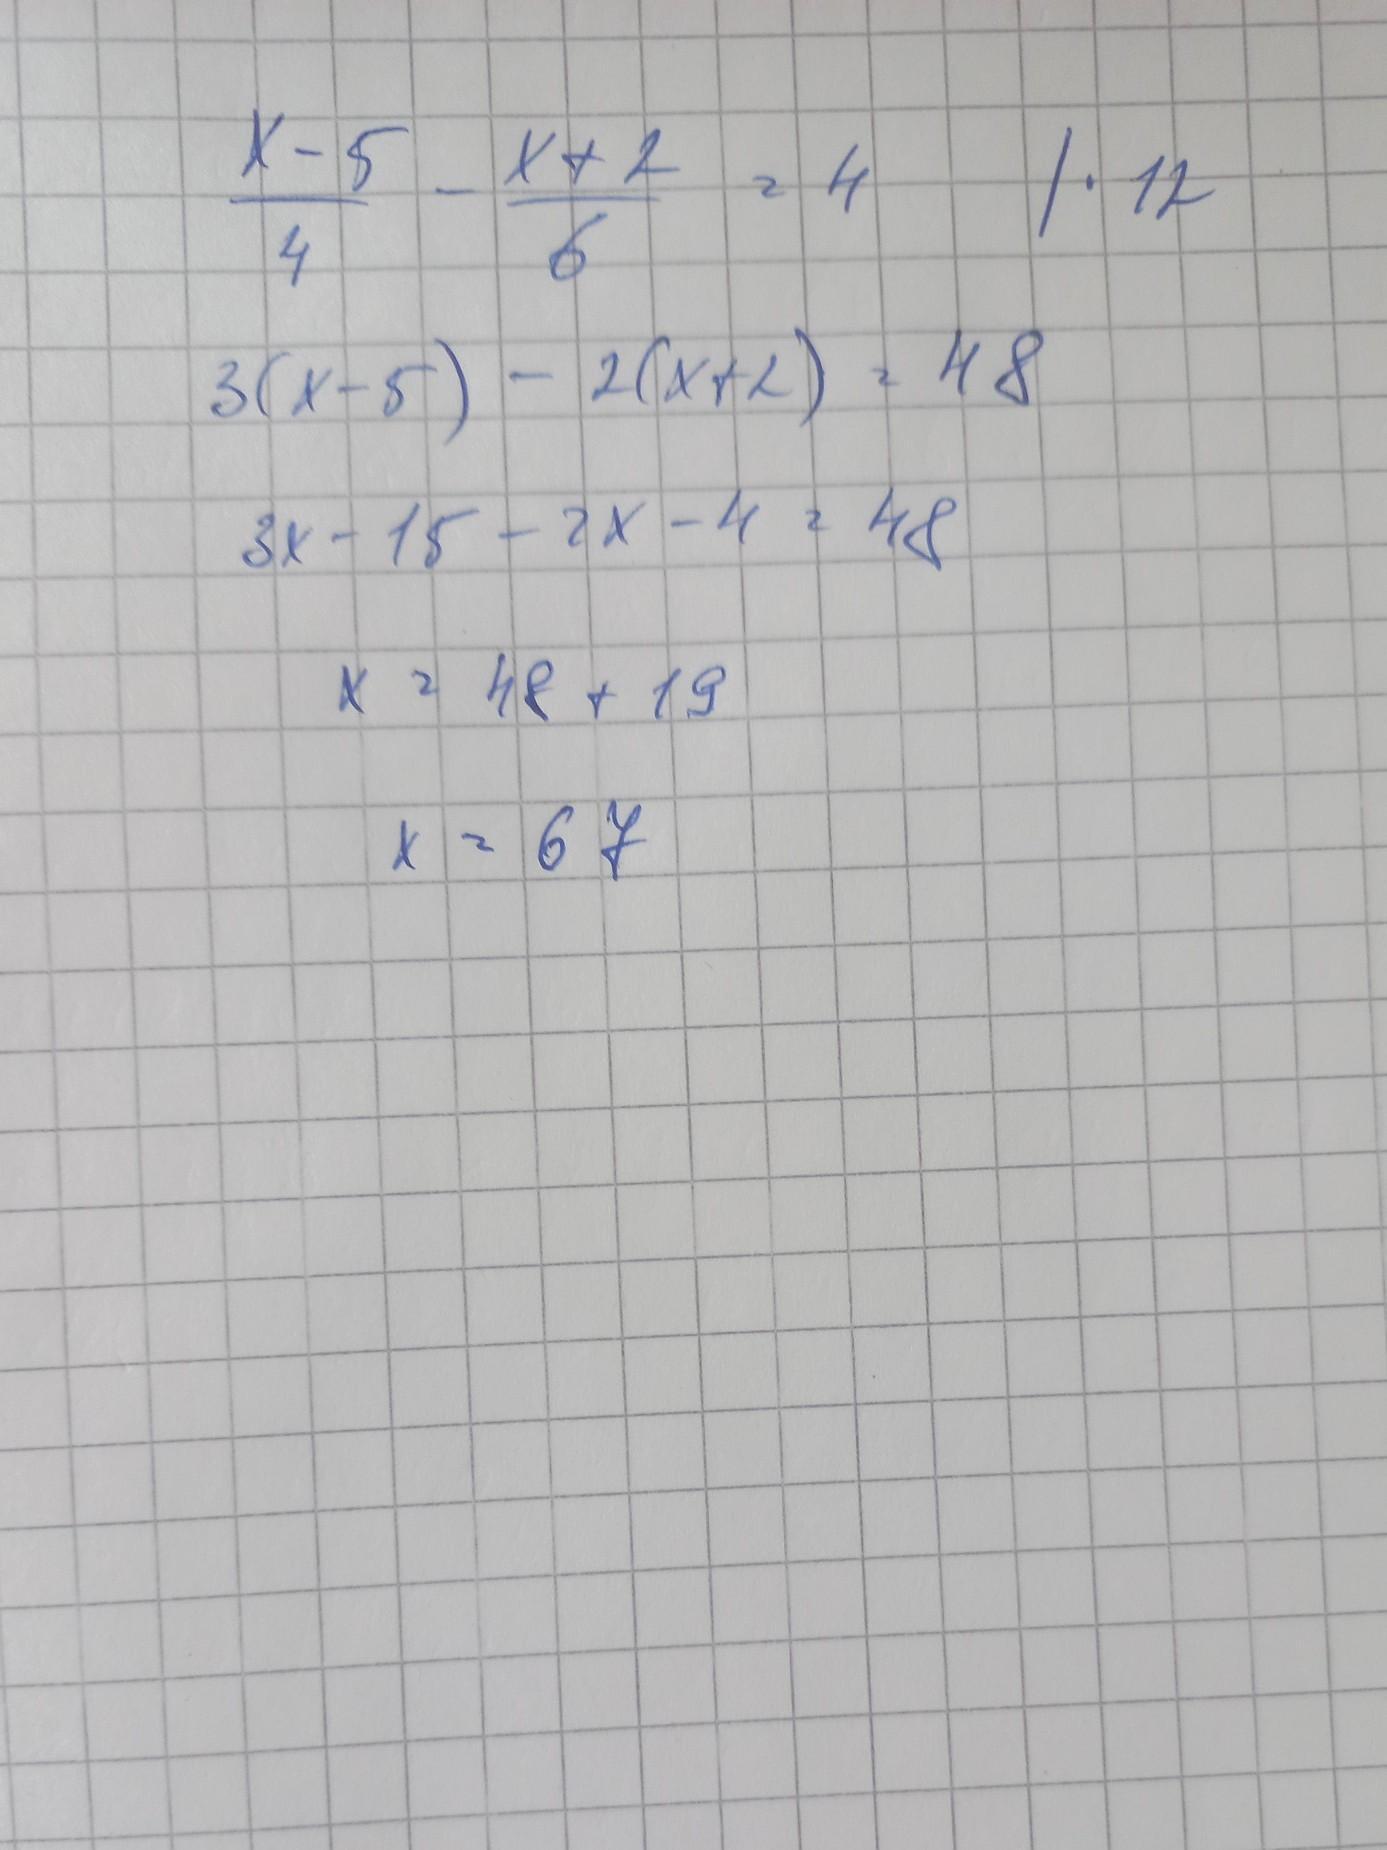 (x-5)/4 - (x+2)/6 = 4 /·12
3(x-5) - 2(x+2) = 48
3x - 15 - 2x - 4 = 48
x = 48 + 19
x = 67